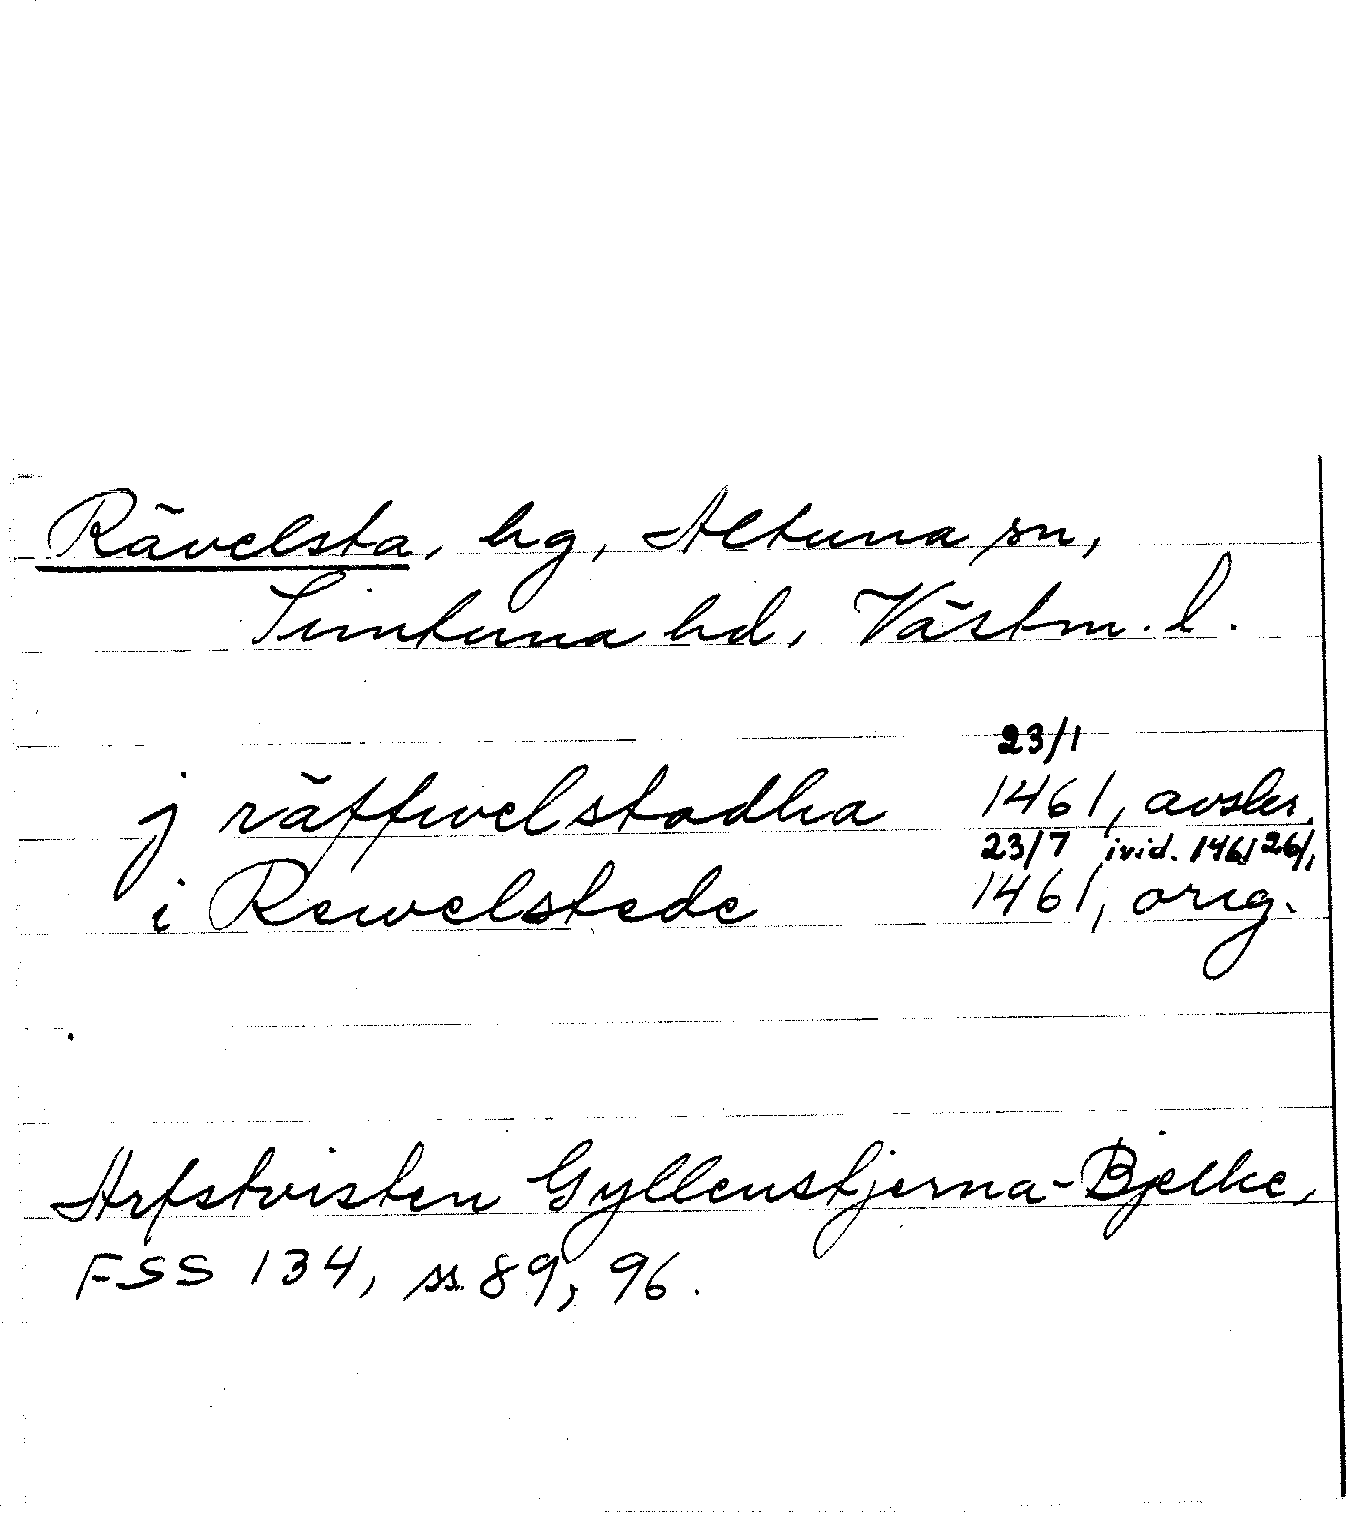 Rävelsta, hg, Altuna sn,
Simtuna hd, Västm. l.
23/1
j räffwelstadha 1461, avskr.
23/7 ivid. 1461 26/1
i Rewelstede 1461, orig.
Arfstvisten Gyllenstjerna-Bjelke,
FSS 134, ss. 89, 96.